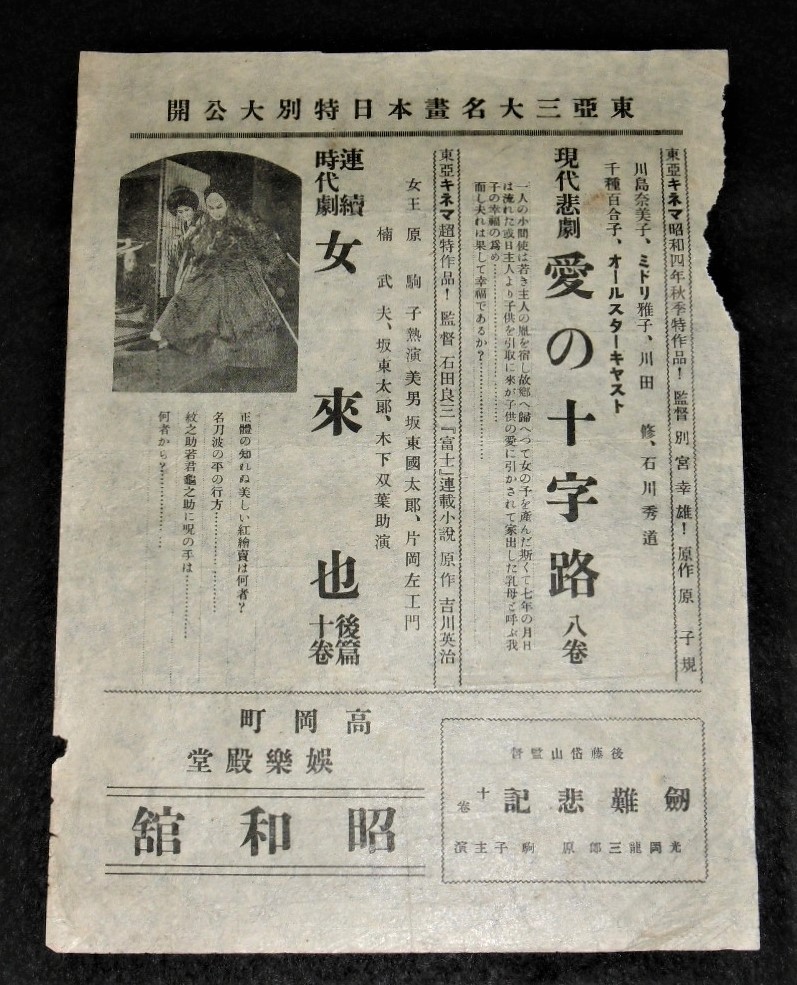 東亞三大名畫本日特別大公開
東亞キネマ昭和四年秋季特作品！ 監督 別宮幸雄！ 原作 原 子規
川島奈美子、ミドリ雅子、川田 修、石川秀道
千種百合子、オールスターキャスト
現代悲劇 愛の十字路 八卷
一人の小間使は若き主人の胤を宿し故郷へ歸へつて女の子を產んだ斯くて七年の月日
は流れた或日主人より子供を引取に來が子供の愛に引かされて家出した乳母と呼ぶ我
子の幸福の爲め…………………
而し夫れは果して幸福であるか？…………………
東亞キネマ超特作品！ 監督 石田良三 『富士』連載小說 原作 吉川英治
女王 原 駒子熱演 美男 坂東國太郎、片岡左工門
楠 武夫、坂東太郎、木下双葉助演
連續時代劇 女來也 後篇十卷
正體の知れぬ美しい紅繪賣は何者？
名刀波の平の行方…………………
紋之助若君龜之助に呪の手は…………
何者から？…………………
後藤岱山監督
劒難悲記 十卷
光岡龍三郎 原 駒子主演
高岡町
娛樂殿堂
昭和舘